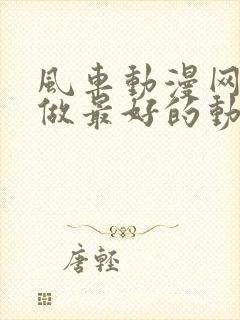 風車動漫网
做最好的動
唐輕